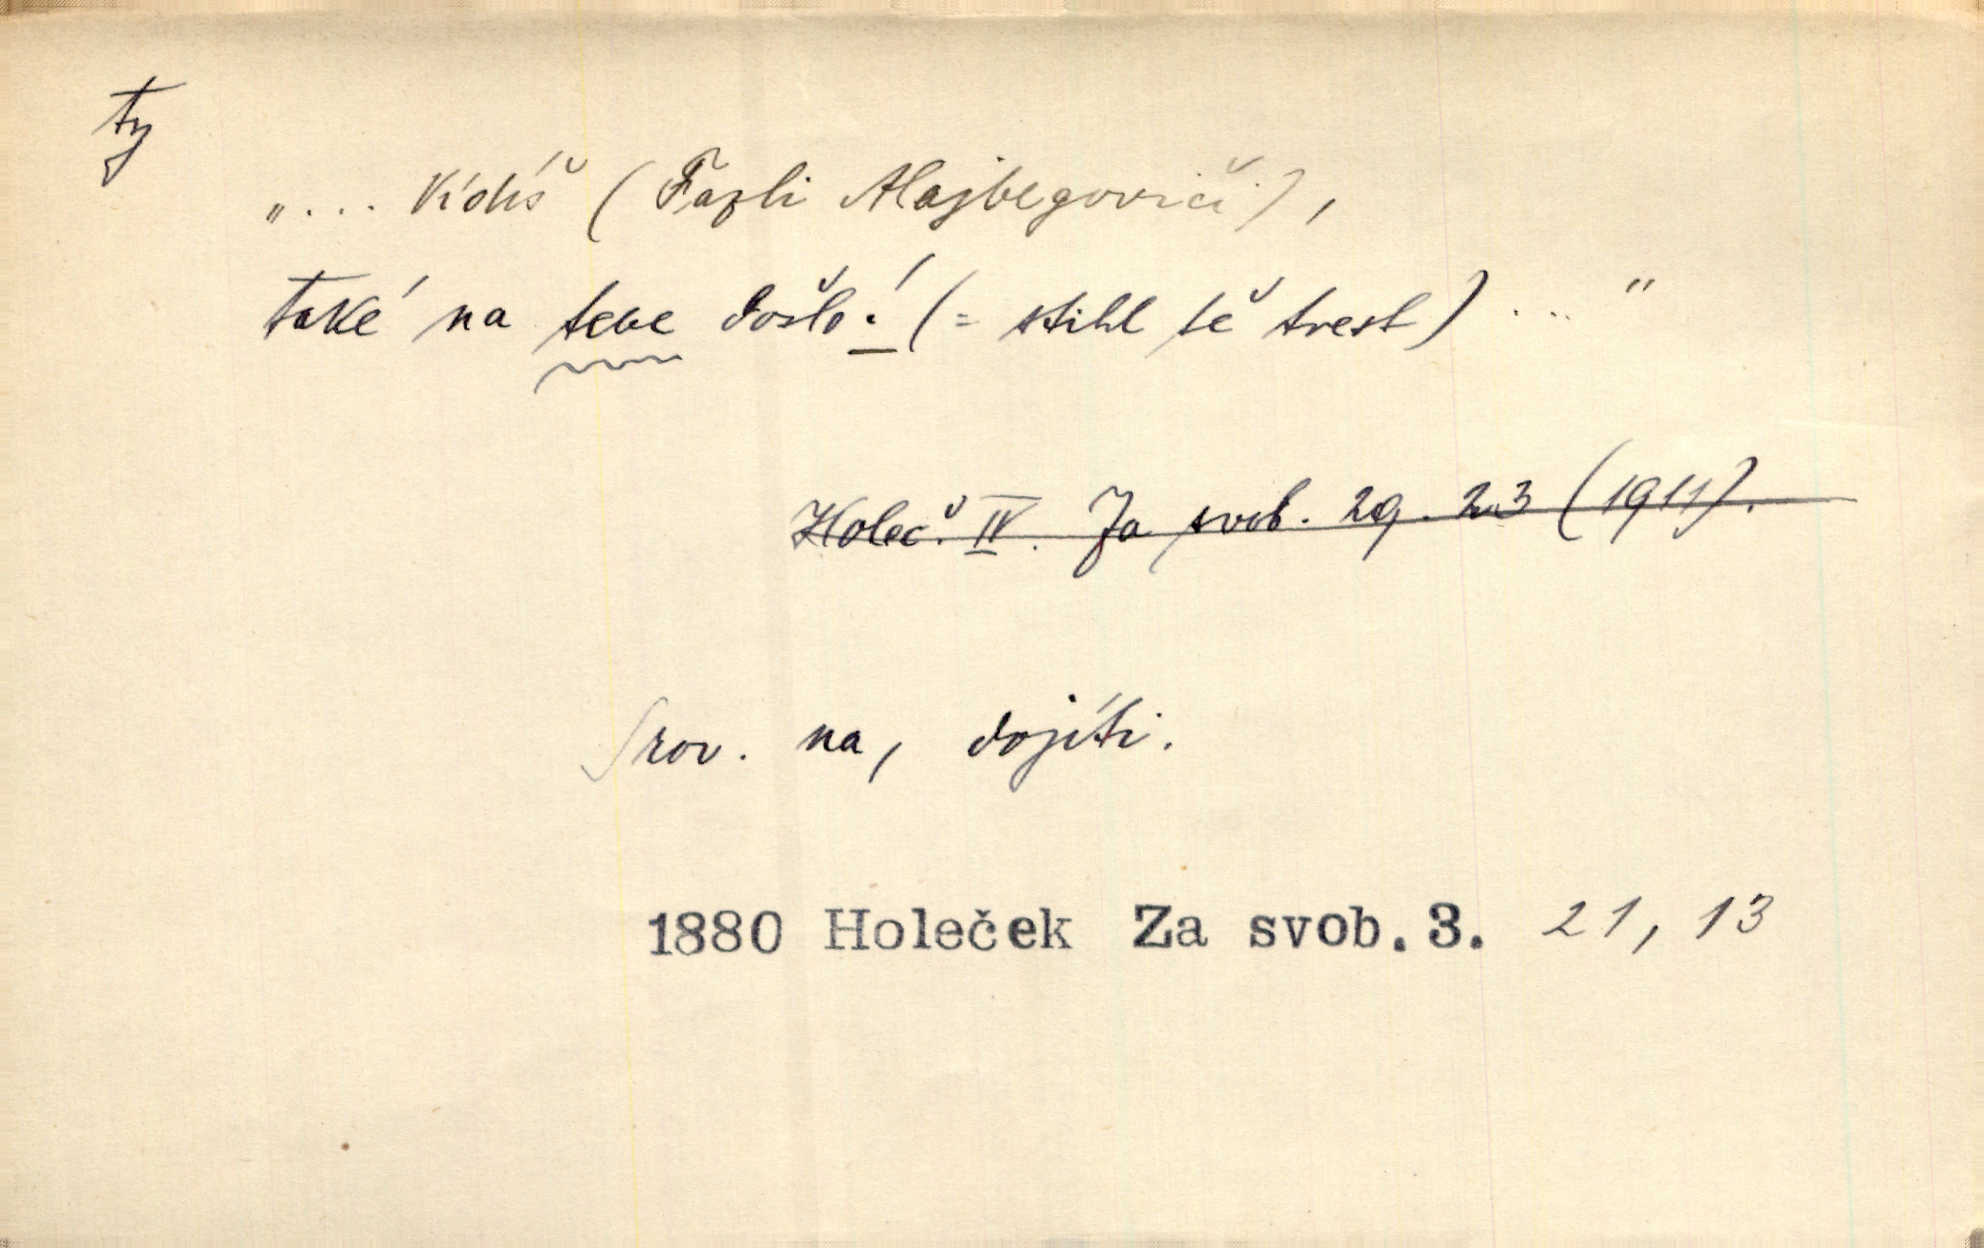 ty
„... Vidíš (Fazli Alajbegovič),
také na tebe došlo! (= stihl tě trest) ... "
Holeč. IV. Za svob. 29. 23 (1911).
Srov. na, dojíti.
1880 Holeček Za svob. 3. 21, 13